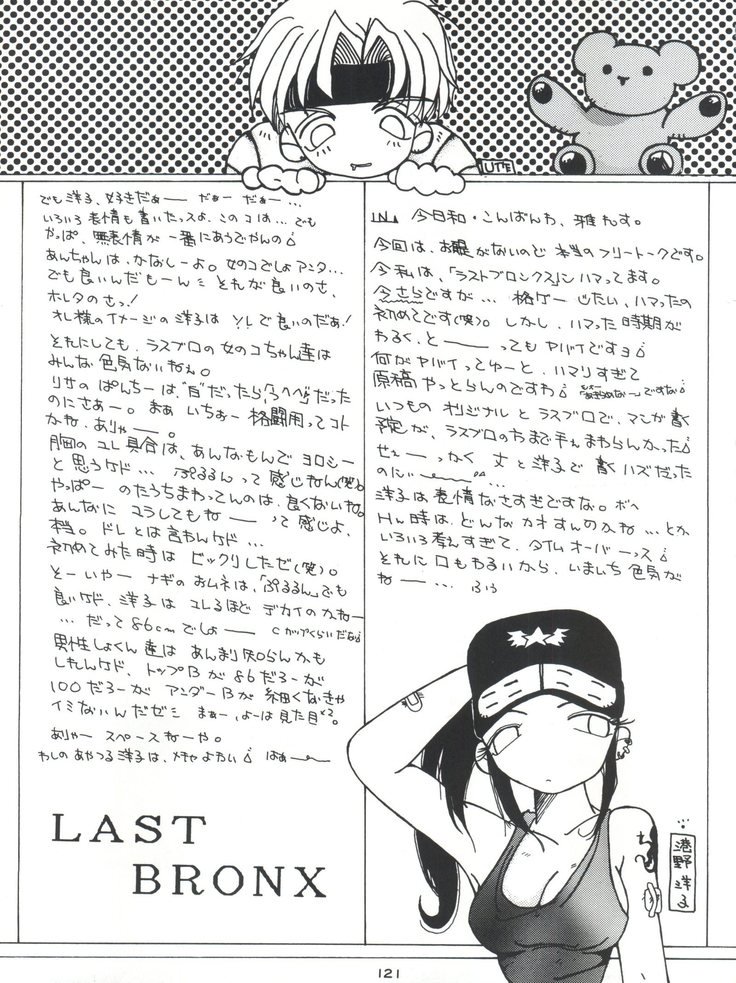 今日和・こんばんわ、雅れす。
今回は、お題がないので本当のフリートークです。
今私は、「ラストブロンクス」にハマってます。
今さらですが… 格ゲーじたい、ハマったの
初めてです(笑)。しかし、ハマった時期が
わるく、と――ってもヤバイですヨ
何がヤバイってゆーと、ハマりすぎて
原稿やっとらんのですわ
いつものオリジナルとラスブロで、マンガ書く
予定が、ラスブロのちまで手ぇまわらんかった
せぇーっかく 丈と洋子で書くハズだった
のにぃ――
洋子は表情なさすぎですな。
H時は、どんなカオすんのかね…とか
いろいろ考えすぎて、タイムオーバーっス
それに口もわるいから、いまいち色気が
ねー… ふぅ
でも洋子、好きだぁ―― だぁー だぁー…
いろいろ表情も書いたっスよ、このコは… でも
やっぱ、無表情が一番にあうでやんの
あんちゃんは、かなしーよ。女のコでしょアンタ…
でも良いんだもーんミ それが良いのさ、
ホレタのさっ!
オレ様のイメージの洋子はソレで良いのだぁ!
それにしても、ラスブロの女のコちゃん達は
みんな色気ないねぇ。
リサのぱんちーは、"白"だったら「うへへ」だった
のにさぁー。まぁ いちおー格闘用ってコト
かね、ありゃー。
胸のユレ具合は、あんなもんでヨロシー
と思うケド… ぷるるんって感じねん(笑)。
やっぱーのたうちまわってんのは、良くないね。
あんなにユラしてもね―― って感じよ、
ドレとは言わんケド…
初めてみた時はビックリしただ(笑)。
そーいやー ナギのおムネは、「ぷるるん」でも
良いケド、洋子はユレるほどデカイのかねー
… だって86cmでしょ―― Cカップくらいだな
男性しょくん達はあんまり知らんかも
しれんケド、トップBが86だろーが
100だろーが アンダーBが細くなきゃ
イミないんだゼミ まぁー、よーは見た目×2。
ありゃー スペースねーや。
わしのあやつる洋子は、メチャよわい はぁ――
LAST
BRONX
港野洋子
121